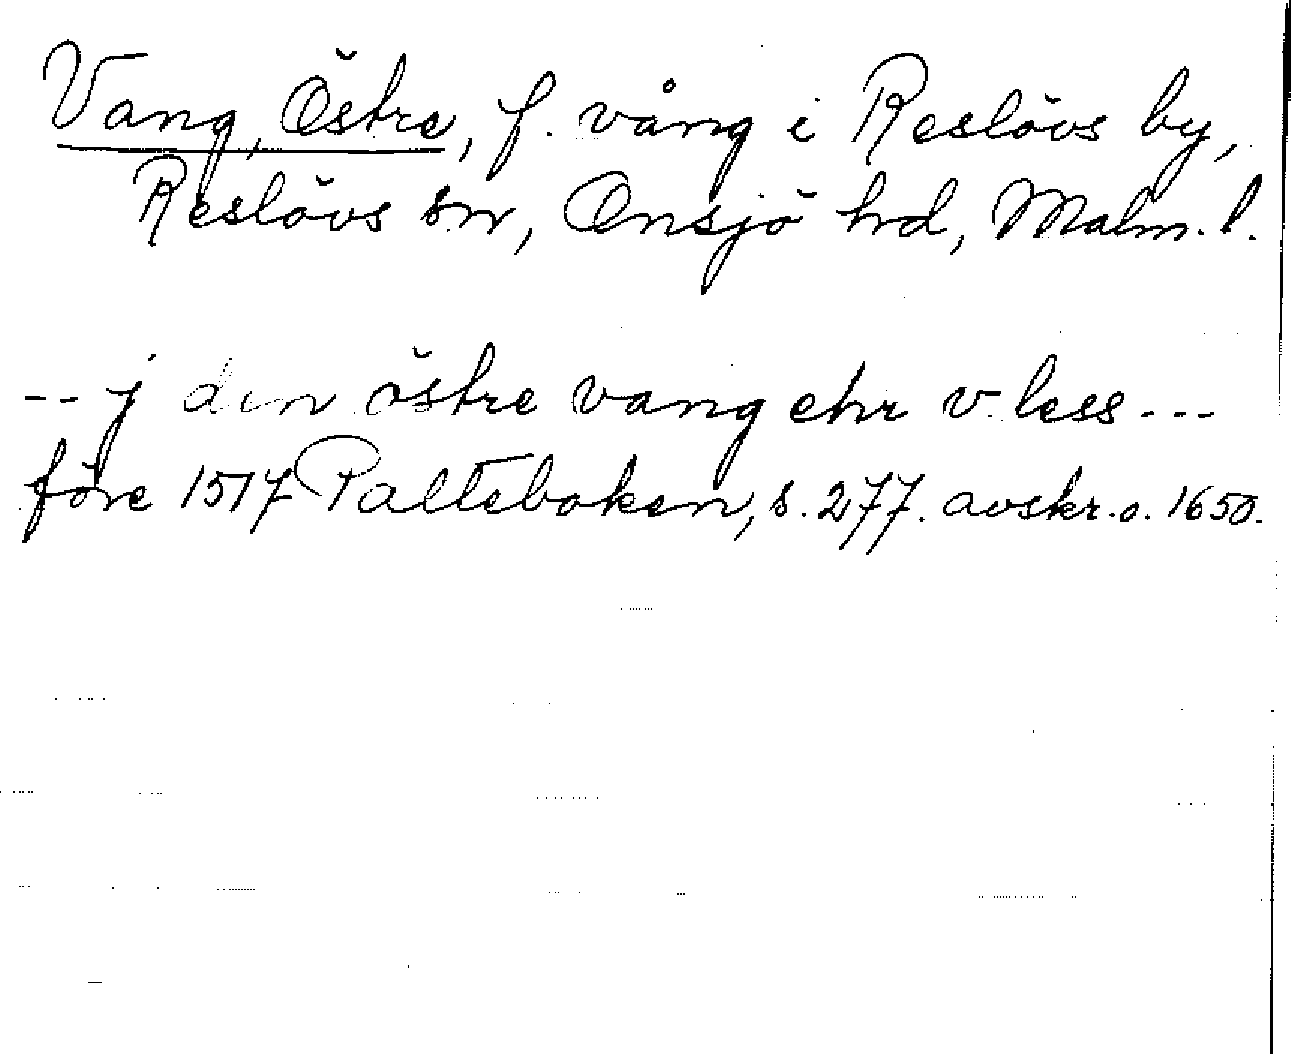 Vang, Östre, f. vång i Reslövs by,
Reslövs sn, Onsjö hrd, Malm. l.
-- j den östre vang ehr v.less ---
före 1517 Palteboken, s. 277. avskr. o. 1650.